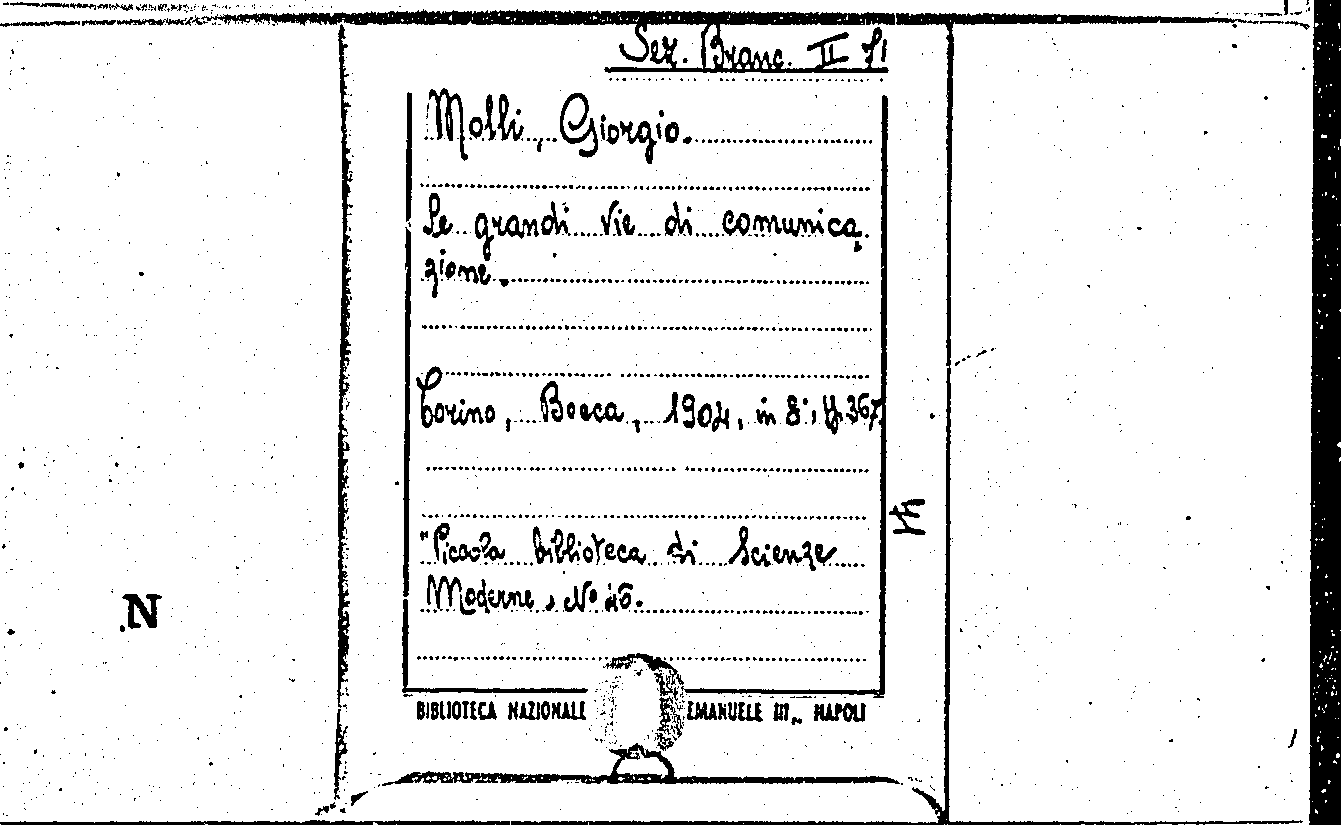 Sez. Branc. II
Molli, Giorgio.
Le grandi vie di comunica
zione.
Torino, Bocca, 1904, in 8°, pp. 367.
"Piccola biblioteca di Scienze
Moderne, N°
N
BIBLIOTECA NAZIONALE EMANUELE III„ NAPOLI